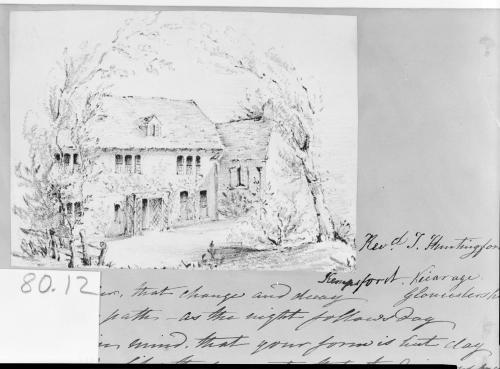 Revd. T. Huntingfor
Kempsford. Vicarage.
Gloucesters
80.12
that change and decay
path - as the night follows Day
mind, that your form is but clay